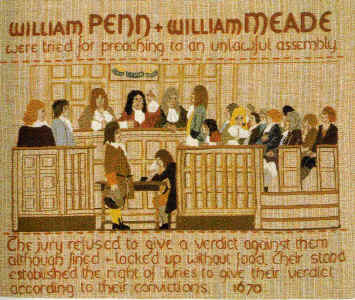 WILLIAM PENN + WILLIAM MEADE
were tried for preaching to an unlawful assembly.
The jury refused to give a verdict against them
although fined + locked up without food. Their stand
established the right of Juries to give their verdict
according to their convictions. 1670